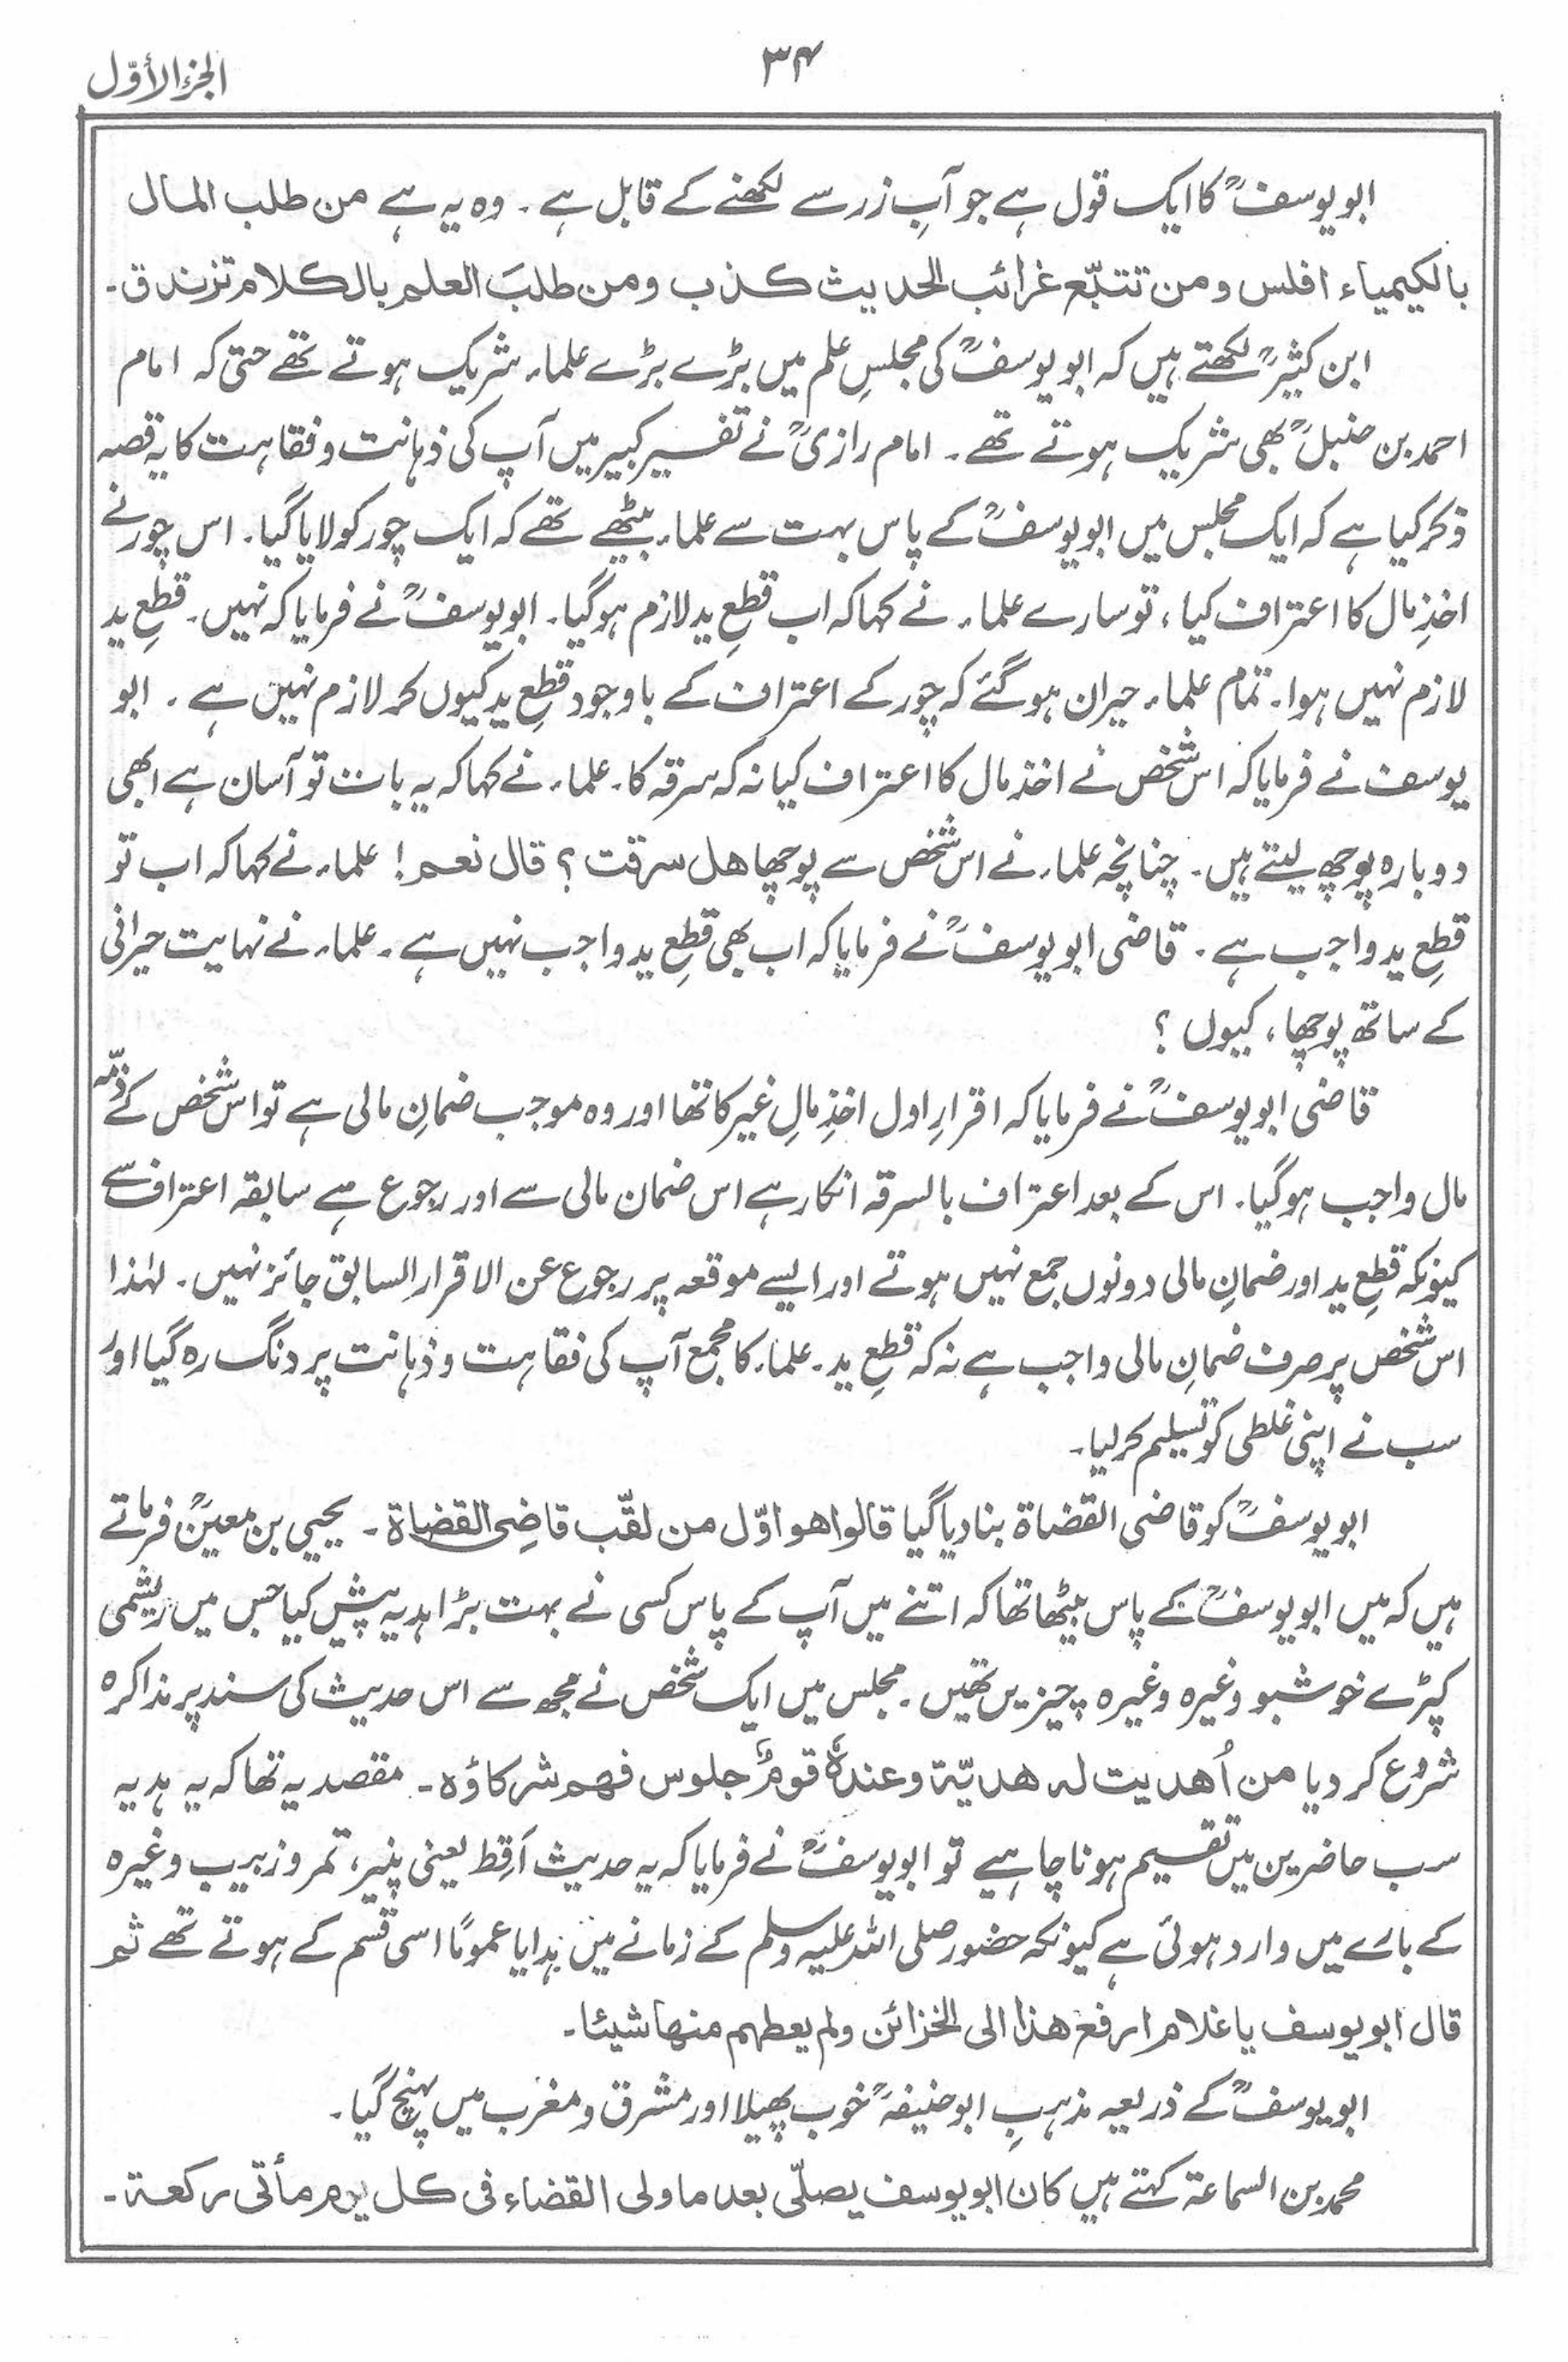 الجزء الأوّل
۳۴
ابویوسفؒ کا ایک قول ہے جو آبِ زر سے لکھنے کے قابل ہے۔ وہ یہ ہے من طلب المال
بالکیمیاء افلس ومن تتبّع غرائب الحدیث کذب ومن طلبَ العلم بالکلام تزندق۔
ابن کثیرؒ لکھتے ہیں کہ ابو یوسفؒ کی مجلسِ علم میں بڑے بڑے علماء شریک ہوتے تھے حتیٰ کہ امام
احمد بن حنبلؒ بھی شریک ہوتے تھے۔ امام رازیؒ نے تفسیر کبیر میں آپ کی ذہانت و فقاہت کا یہ قصہ
ذکر کیا ہے کہ ایک مجلس میں ابو یوسفؒ کے پاس بہت سے علماء بیٹھے تھے کہ ایک چور کو لایا گیا۔ اس چور نے
اخذِ مال کا اعتراف کیا، تو سارے علماء نے کہا کہ اب قطعِ ید لازم ہوگیا۔ ابویوسفؒ نے فرمایا کہ نہیں۔ قطعِ ید
لازم نہیں ہوا۔ تمام علماء حیران ہوگئے کہ چور کے اعتراف کے باوجود قطعِ ید کیوں کر لازم نہیں ہے۔ ابو
یوسف نے فرمایا کہ اس شخص نے اخذ مال کا اعتراف کیا نہ کہ سرقہ کا۔ علماء نے کہا کہ یہ بات تو آسان ہے ابھی
دوبارہ پوچھ لیتے ہیں۔ چنانچہ علماء نے اس شخص سے پوچھا ھل سرقت ؟ قال نعم! علماء نے کہا کہ اب تو
قطعِ ید واجب ہے۔ قاضی ابو یوسفؒ نے فرمایا کہ اب بھی قطعِ ید واجب نہیں ہے۔ علماء نے نہایت حیرانی
کے ساتھ پوچھا، کیوں ؟
قاضی ابو یوسفؒ نے فرمایا کہ اقرارِ اول اخذِ مالِ غیر کا تھا اور وہ موجب ضمانِ مالی ہے تو اس شخص کے ذمّہ
مال واجب ہوگیا۔ اس کے بعد اعتراف بالسرقہ انکار ہے اس ضمان مالی سے اور رجوع ہے سابقہ اعتراف سے
کیونکہ قطعِ ید اور ضمانِ مالی دونوں جمع نہیں ہوتے اور ایسے موقعہ پر رجوع عن الاقرار السابق جائز نہیں۔ لہٰذا
اس شخص پر صرف ضمانِ مالی واجب ہے نہ کہ قطعِ ید۔ علماء کا مجمع آپ کی فقاہت و ذہانت پر دنگ رہ گیا اور
سب نے اپنی غلطی کو تسلیم کر لیا۔
ابو یوسفؒ کو قاضی القضاۃ بنا دیا گیا قالوا ھو اوّل من لقّب قاضِی القضاۃ۔ یحییٰ بن معینؒ فرماتے
ہیں کہ میں ابو یوسفؒ کے پاس بیٹھا تھا کہ اتنے میں آپ کے پاس کسی نے بہت بڑا ہدیہ پیش کیا جس میں ریشمی
کپڑے خوشبو وغیرہ وغیرہ چیزیں تھیں۔ مجلس میں ایک شخص نے مجھ سے اس حدیث کی سند پر مذاکرہ
شروع کر دیا من اُھدیت لہ ھدیّۃ وعندہٗ قومٌ جلوس فھم شرکاؤہ۔ مقصد یہ تھا کہ یہ ہدیہ
سب حاضرین میں تقسیم ہونا چاہیے تو ابو یوسفؒ نے فرمایا کہ یہ حدیث اَقِط یعنی پنیر، تمر و زبیب وغیرہ
کے بارے میں وارد ہوئی ہے کیونکہ حضور صلی اللہ علیہ وسلم کے زمانے میں ہدایا عمومًا اسی قسم کے ہوتے تھے ثم
قال ابو یوسف یا غلام ارفع ھذا الی الخزائن ولم یعطہم منھا شیئا۔
ابو یوسفؒ کے ذریعہ مذہبِ ابو حنیفہؒ خوب پھیلا اور مشرق و مغرب میں پہنچ گیا۔
محمد بن السماعۃ کہتے ہیں کان ابو یوسف یصلّی بعد ما ولی القضاء فی کل یوم مأتی رکعۃ۔